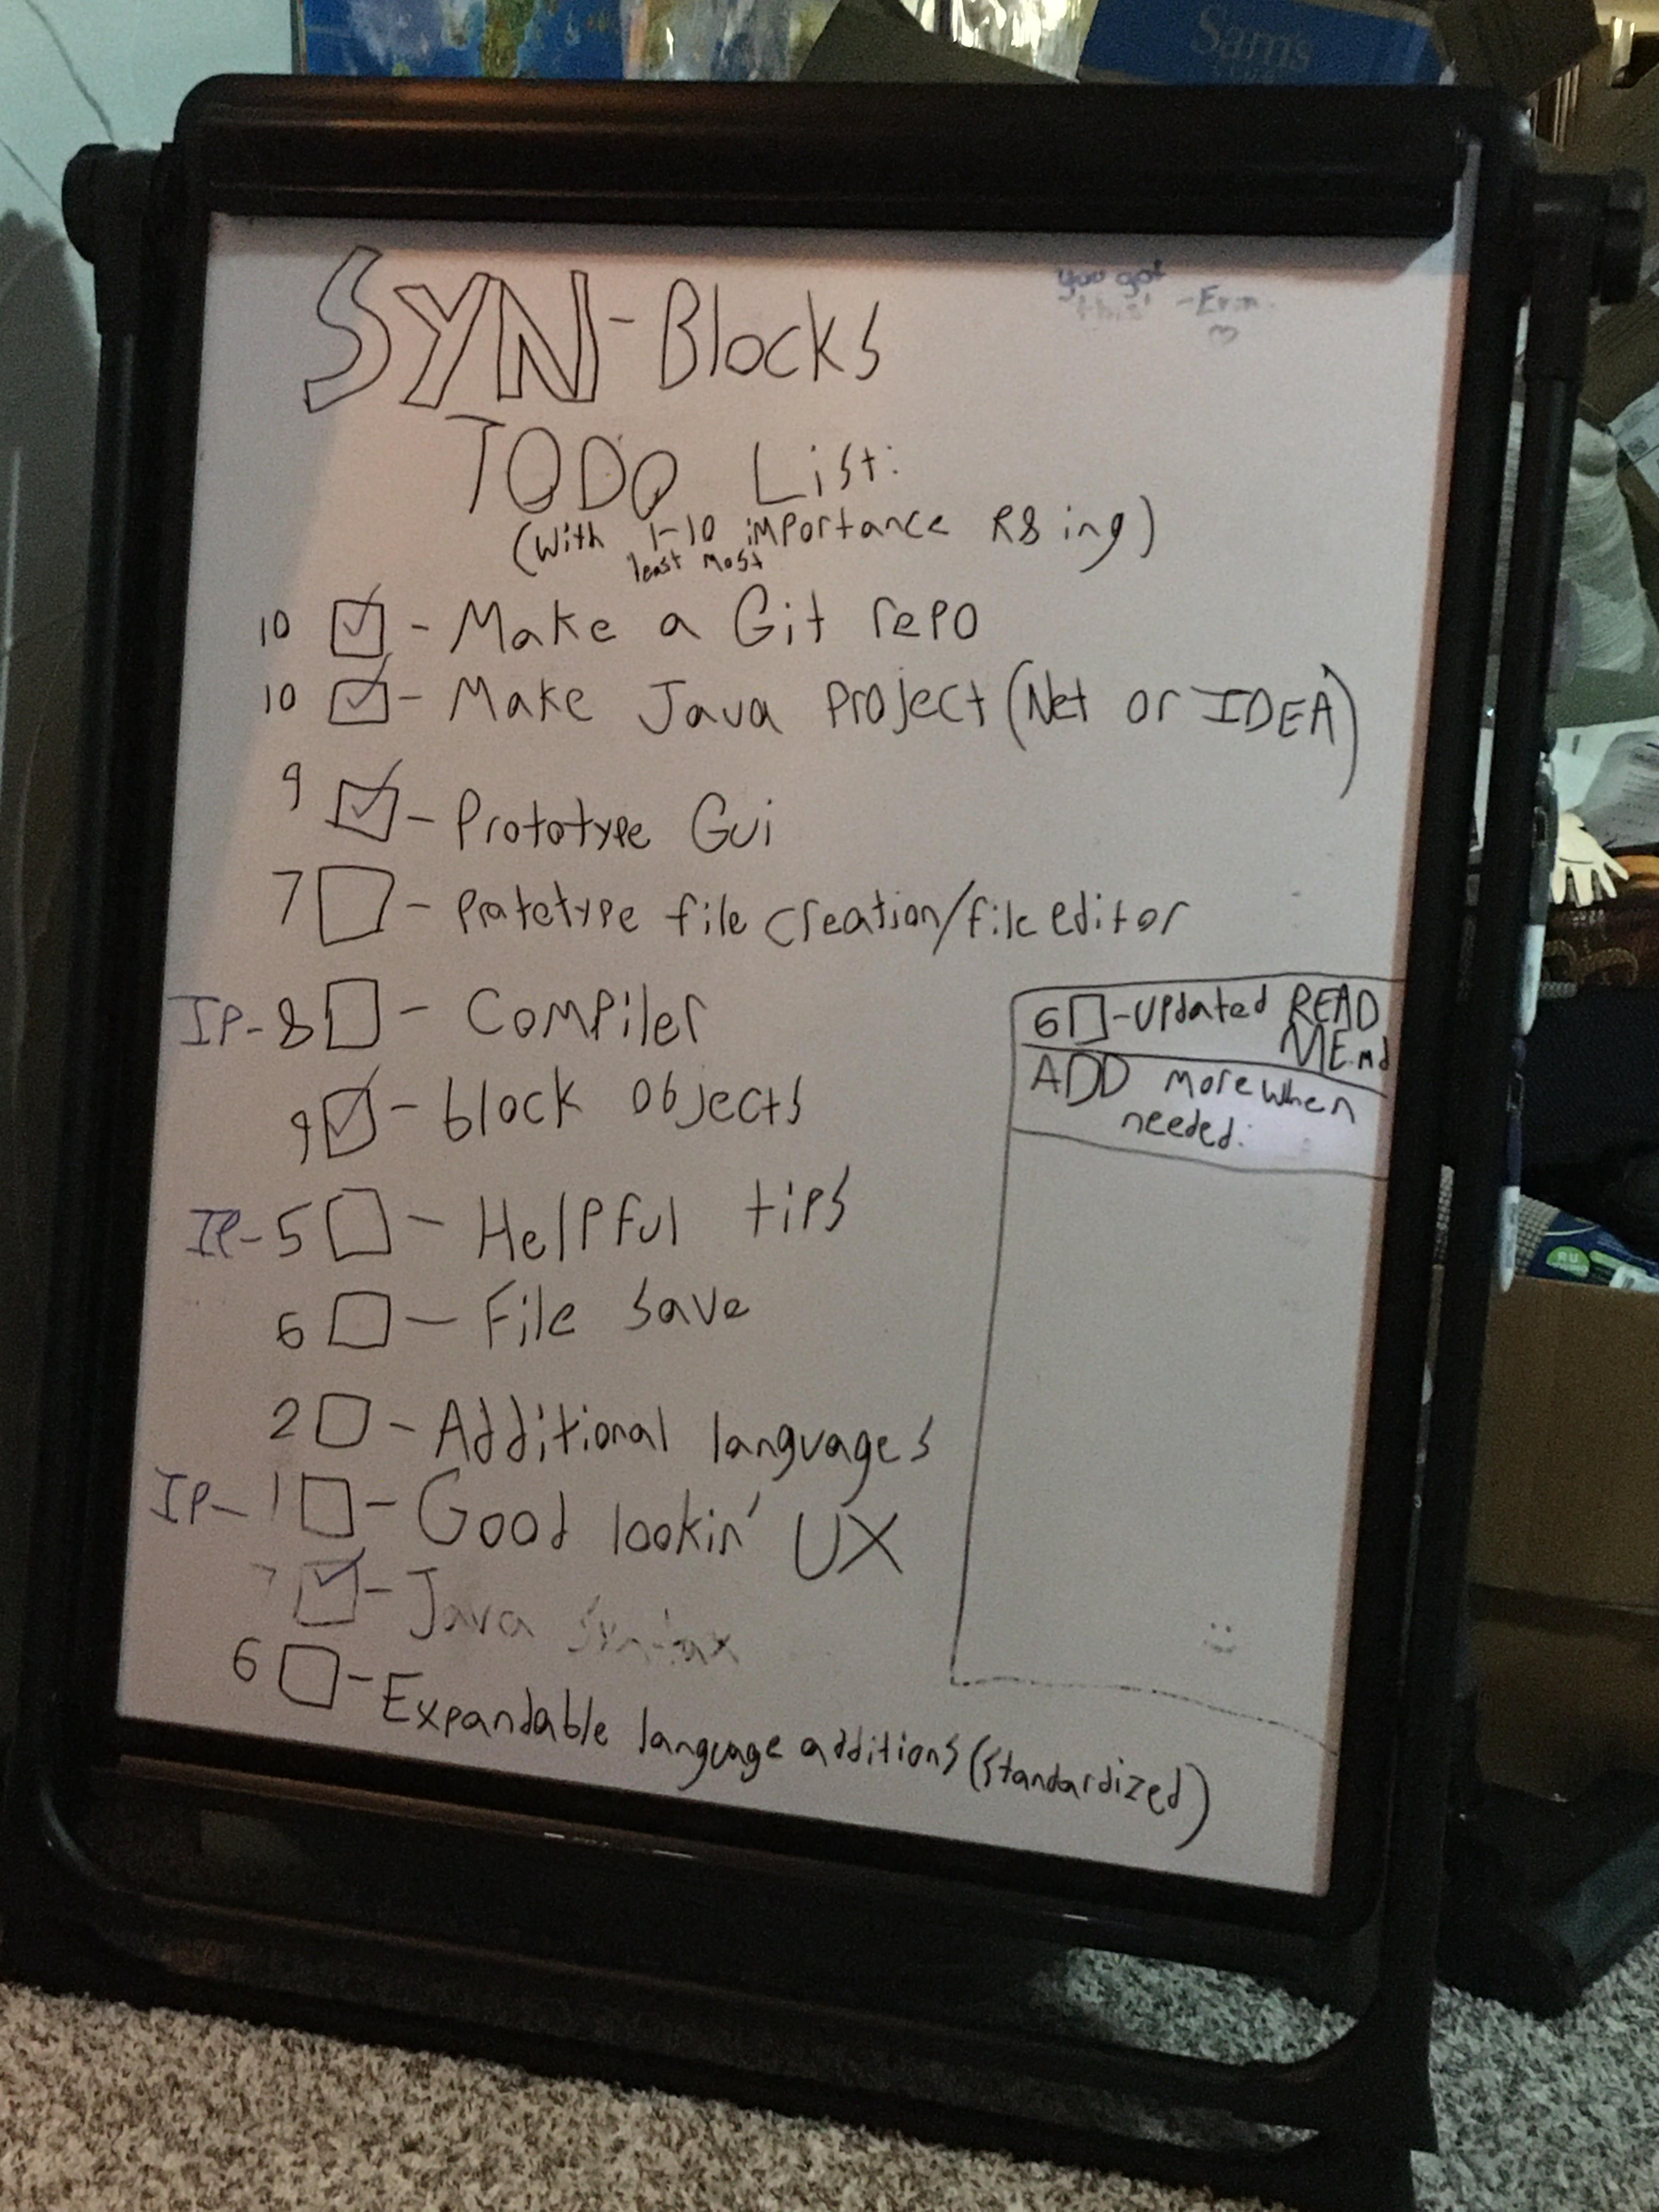 Sam's
you got
this! -Erin
SYN-Blocks
TODO List:
(With 1-10 importance R8ing)
least most
10 ☑ - Make a Git repo
10 ☑ - Make Java Project (Net or IDEA)
9 ☑ - Prototype Gui
7 ☐ - Prototype file creation/file editor
IP- 8 ☐ - Compiler
9 ☑ - block objects
IP- 5 ☐ - Helpful tips
6 ☐ - File save
2 ☐ - Additional languages
IP- 1 ☐ - Good lookin' UX
7 ☑ - Java Syntax
6 ☐ - Expandable language additions (standardized)
6 ☐ - Updated READ
ME.md
ADD more when
needed.